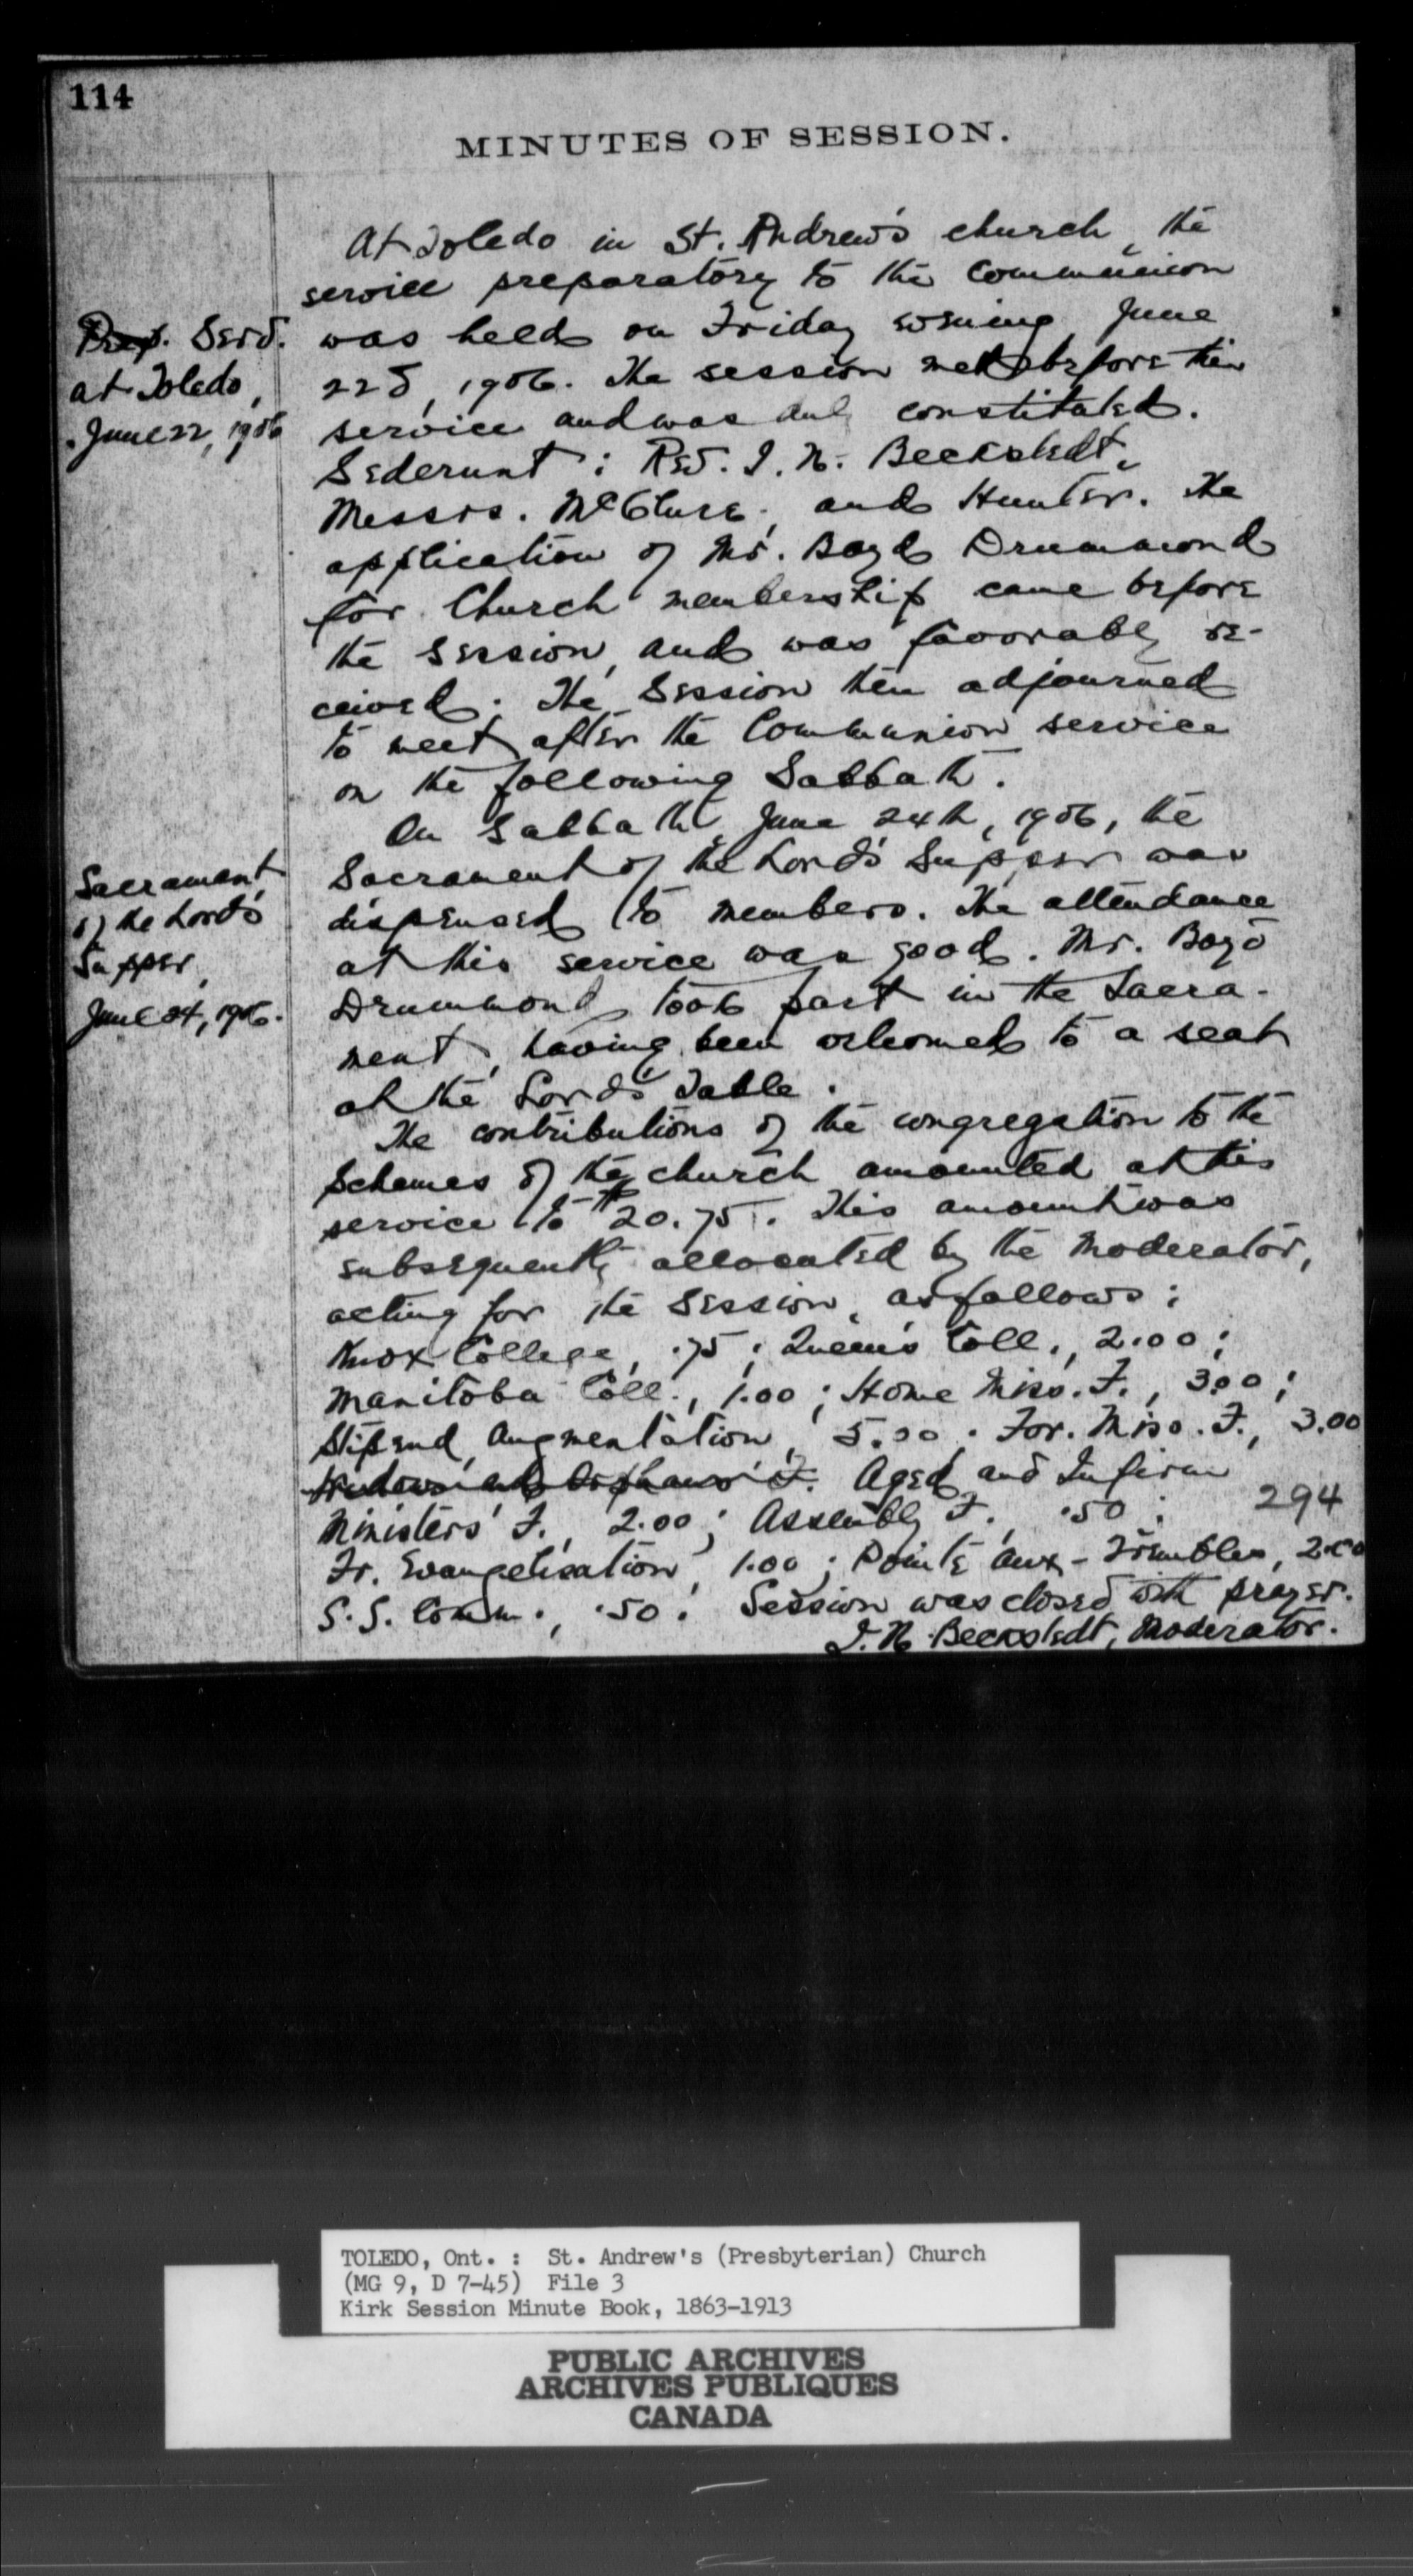 114
MINUTES OF SESSION.
At Toledo in St. Andrew's church, the
service preparatory to the Communion
Prep. Serv.
at Toledo,
June 22, 1906
was held on Friday evening June
22d, 1906. The session met before the
service and was duly constituted.
Sederunt: Rev. I. N. Beckstedt,
Messrs. McClure, and Hunter. The
application of Mr. Boyd Drummond
for Church membership came before
the Session, and was favorably re-
ceived. The Session then adjourned
to meet after the Communion service
on the following Sabbath.
On Sabbath, June 24th, 1906, the
Sacrament
of the Lord's
Supper,
June 24, 1906.
Sacrament of the Lord's Supper was
dispensed to members. The attendance
at this service was good. Mr. Boyd
Drummond took part in the Sacra-
ment, having been welcomed to a seat
at the Lord's Table.
The contributions of the congregation to the
schemes of the church amounted at this
service to $20.75. This amount was
subsequently allocated by the Moderator,
acting for the Session, as follows:
Knox College, .75; Queen's Coll., 2.00;
Manitoba Coll., 1.00; Home Miss. F., 3.00;
Stipend Augmentation, 5.00. For. Miss. F., 3.00
Widows' and Orphans' F. Aged and Infirm
Ministers' F., 2.00; Assembly F., .50;
294
Fr. Evangelisation, 1.00; Pointe-aux-Trembles, 2.00
S.S. Comm., .50. Session was closed with prayer.
I. N. Beckstedt, Moderator.
TOLEDO, Ont. : St. Andrew's (Presbyterian) Church
(MG 9, D 7-45) File 3
Kirk Session Minute Book, 1863-1913
PUBLIC ARCHIVES
ARCHIVES PUBLIQUES
CANADA